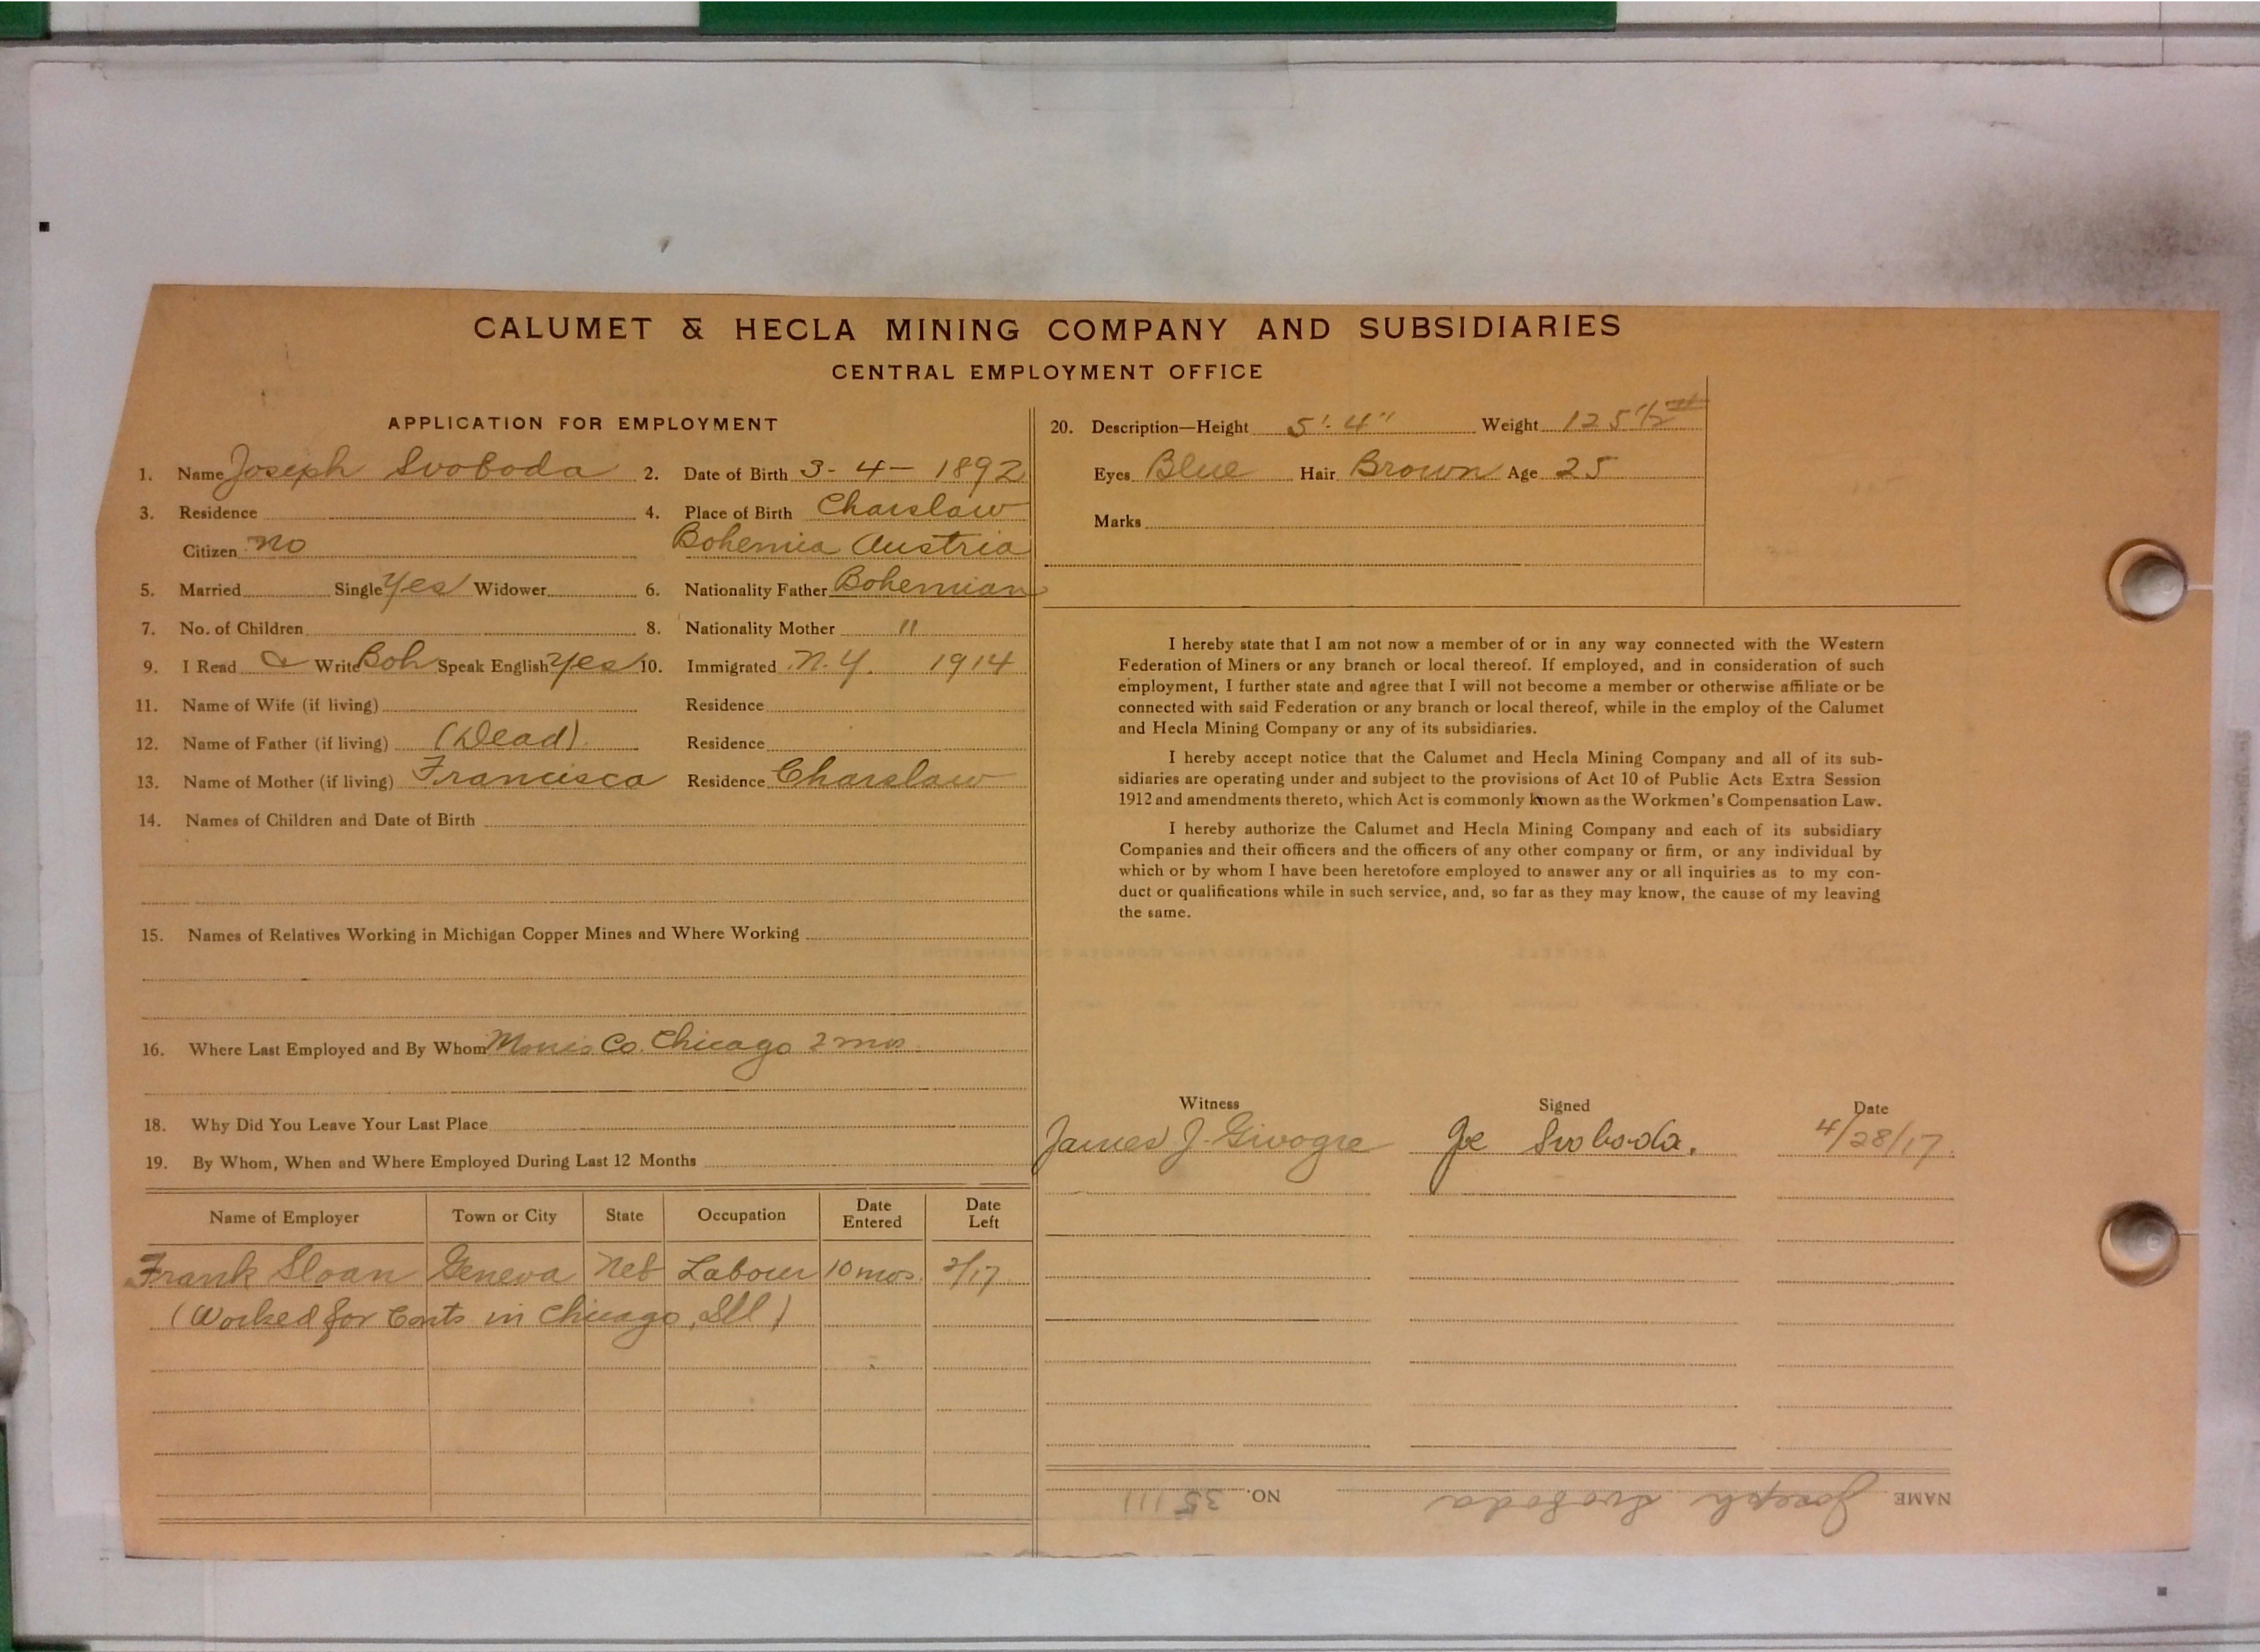 CALUMET & HECLA MINING COMPANY AND SUBSIDIARIES
CENTRAL EMPLOYMENT OFFICE
APPLICATION FOR EMPLOYMENT
1. Name Joseph Svoboda 2. Date of Birth 3-4-1892
3. Residence 4. Place of Birth Charslaw
Citizen no Bohemia Austria
5. Married Single Yes Widower 6. Nationality Father Bohemian
7. No. of Children 8. Nationality Mother "
9. I Read & Write Boh Speak English Yes 10. Immigrated N.Y. 1914
11. Name of Wife (if living) Residence
12. Name of Father (if living) (Dead) Residence
13. Name of Mother (if living) Francisca Residence Charslaw
14. Names of Children and Date of Birth
15. Names of Relatives Working in Michigan Copper Mines and Where Working
16. Where Last Employed and By Whom Morris Co. Chicago 2 mos.
18. Why Did You Leave Your Last Place
19. By Whom, When and Where Employed During Last 12 Months
Name of Employer Town or City State Occupation Date Entered Date Left
Frank Sloan Geneva Neb Labour 10 mos. 2/17
(Worked for Conts in Chicago, Ill)
20. Description—Height 5'. 4" Weight 125 1/2
Eyes Blue Hair Brown Age 25
Marks
I hereby state that I am not now a member of or in any way connected with the Western
Federation of Miners or any branch or local thereof. If employed, and in consideration of such
employment, I further state and agree that I will not become a member or otherwise affiliate or be
connected with said Federation or any branch or local thereof, while in the employ of the Calumet
and Hecla Mining Company or any of its subsidiaries.
I hereby accept notice that the Calumet and Hecla Mining Company and all of its sub-
sidiaries are operating under and subject to the provisions of Act 10 of Public Acts Extra Session
1912 and amendments thereto, which Act is commonly known as the Workmen's Compensation Law.
I hereby authorize the Calumet and Hecla Mining Company and each of its subsidiary
Companies and their officers and the officers of any other company or firm, or any individual by
which or by whom I have been heretofore employed to answer any or all inquiries as to my con-
duct or qualifications while in such service, and, so far as they may know, the cause of my leaving
the same.
Witness Signed Date
James J. Givogre Joe Svoboda. 4/28/17.
NAME Joseph Svoboda NO. 35111